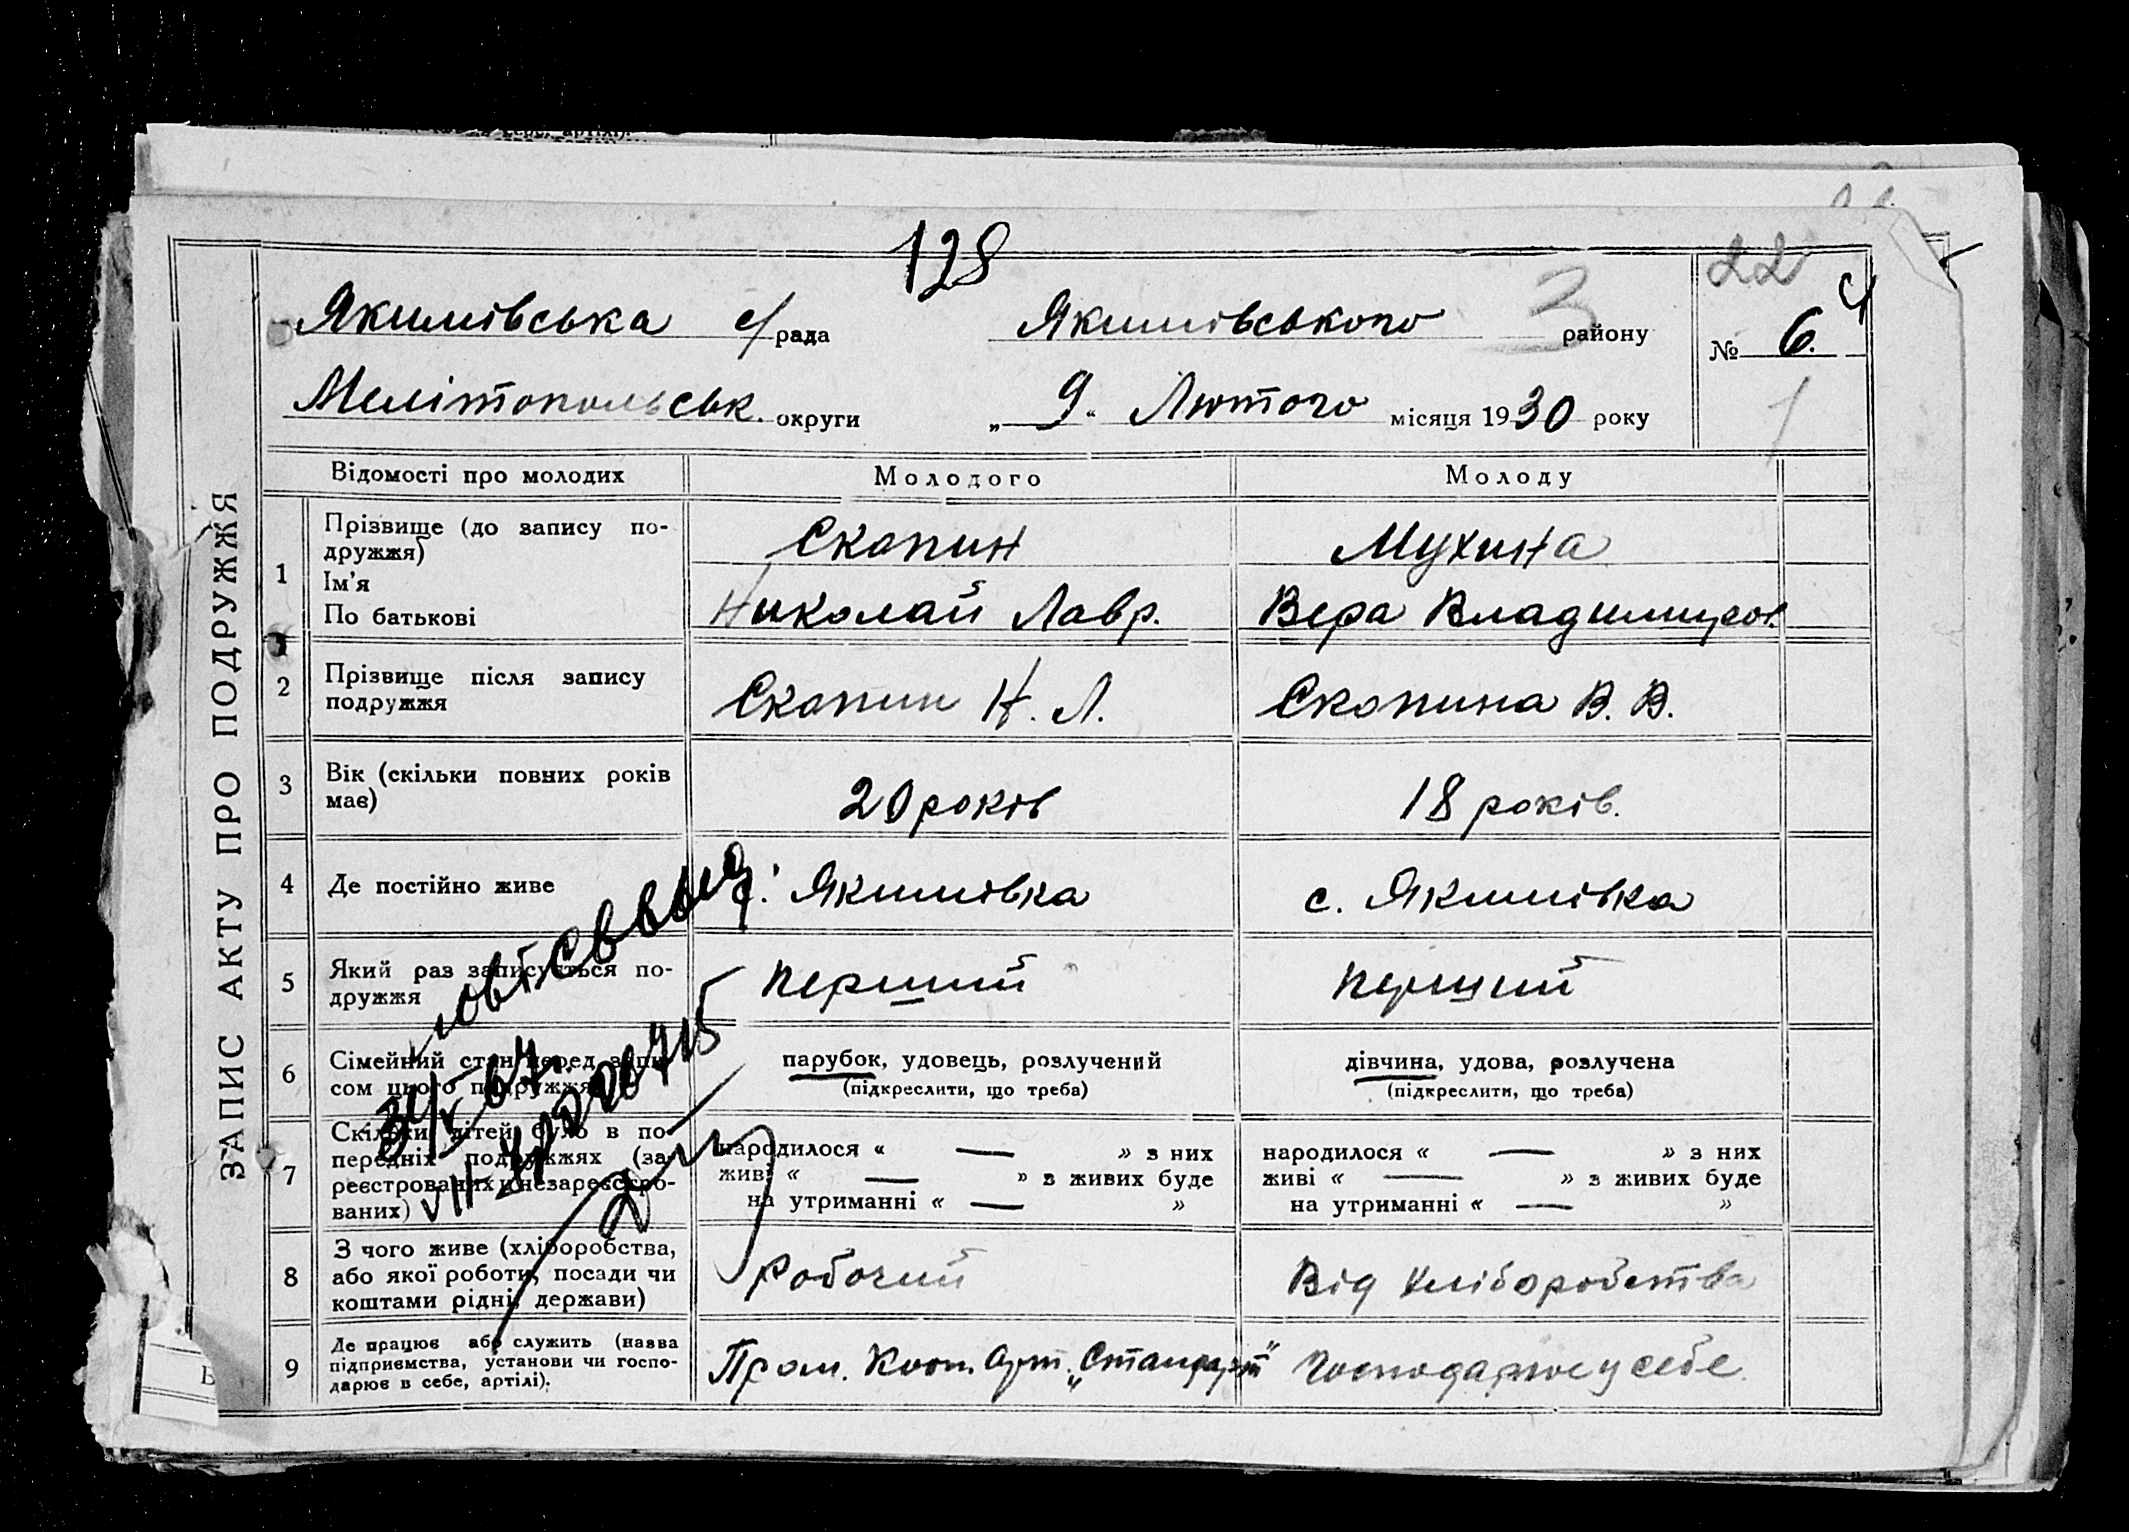 128
22
Якимівська с/рада Якимівського 3 району № 6.
Мелітопольськ. округи „ 9. Лютого місяця 1930 року
ЗАПИС АКТУ ПРО ПОДРУЖЖЯ
Відомості про молодих Молодого Молоду
1 Прізвище (до запису по-
дружжя) Скопин Мухина
Ім'я
По батькові Николай Лавр. Вера Владимиров.
2 Прізвище після запису
подружжя Скопин Н. Л. Скопина В. В.
3 Вік (скільки повних років
має) 20 років 18 років.
4 Де постійно живе с. Якимівка с. Якимівка
5 Який раз записується по-
дружжя Перший Перший
6 Сімейний стан перед запи-
сом цього подружжя
парубок, удовець, розлучений дівчина, удова, розлучена
(підкреслити, що треба) (підкреслити, що треба)
7 Скільки дітей було в по-
передніх подружжях (за-
реєстрованих и незареєстро-
ваних)
народилося « — » з них народилося « — » з них
живі « — » з живих буде живі « — » з живих буде
на утриманні « — » на утриманні « — »
8 З чого живе (хліборобства,
або якої роботи, посади чи
коштами рідні, держави) Робочий Від хліборобства
9 Де працює або служить (назва
підприємства, установи чи госпо-
дарює в себе, артілі). Пром. Кооп. Арт. „Стандарт" Господарює у себе.